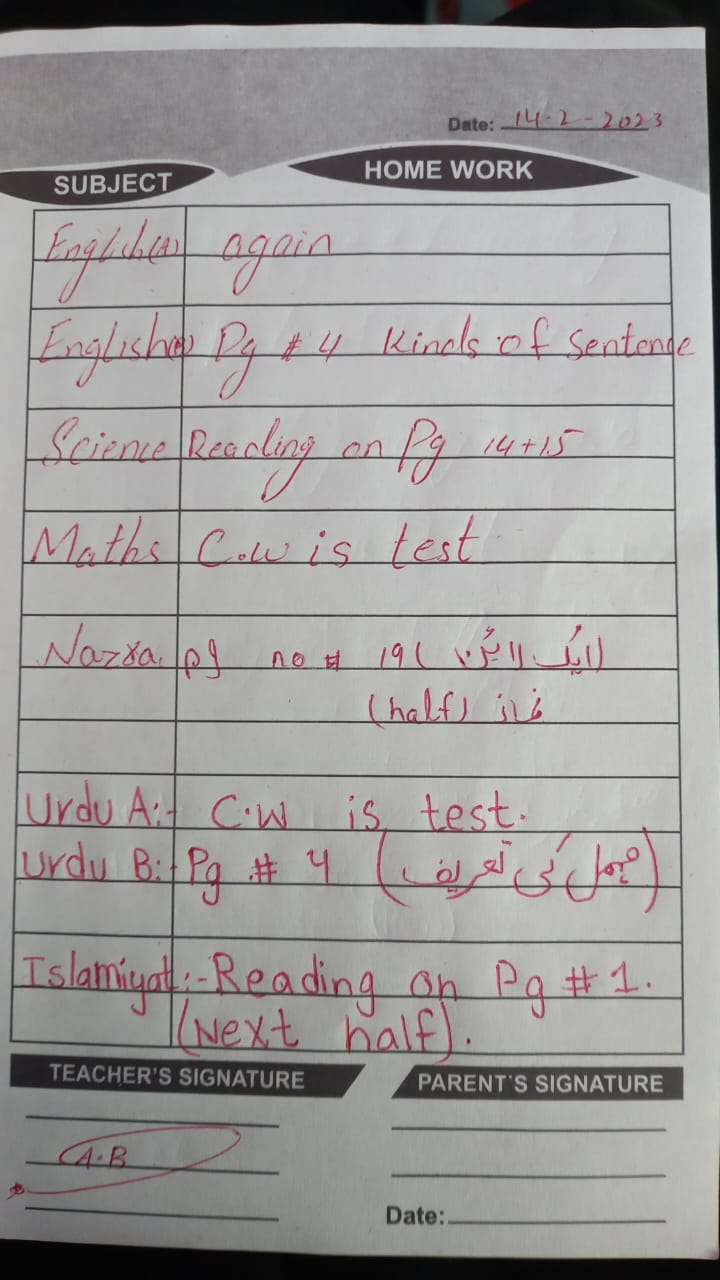 Date: 14-2-2023
SUBJECT HOME WORK
English(A) again
English(B) Pg # 4 Kinds of Sentence
Science Reading on Pg 14+15
Maths C.w is test
Nazra. pg no # 19 (ایک لائن)
(half) نماز
Urdu A:- C.W is test.
Urdu B:- Pg # 4 (مہمل کی تعریف)
Islamiyat:- Reading on Pg # 1.
(Next half).
TEACHER'S SIGNATURE PARENT'S SIGNATURE
A.B
Date: